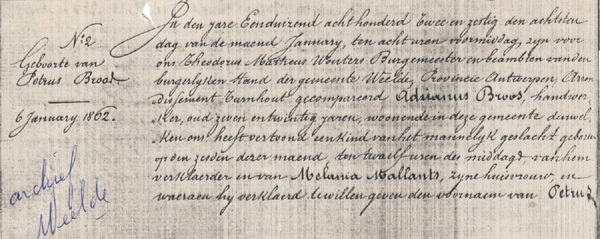 N.º 2
Geboorte van
Petrus Broos
6 January 1862.
archief
Weelde
In den jare Eenduizend acht honderd twee en zestig den achtsten
dag van de maend January, ten acht uren voormiddag, zyn voor
ons Theodorus Mattheus Wouters Burgemeester en beambten van den
burgerlyken Stand der gemeente Weelde, Provincie Antwerpen, Arron
dissement Turnhout gecompareerd Adrianus Broos, handwer
ker, oud zeven en twintig jaren, woonende in deze gemeente dewel
ken ons heeft vertoond een kind van het mannelyk geslacht geboren
op den zesden dezer maend, ten twaelf uren des middags van hem
verklaerder en van Melania Mallants, zyne huisvrouw, en
waeraen hy verklaerd te willen geven den voornaem van Petrus